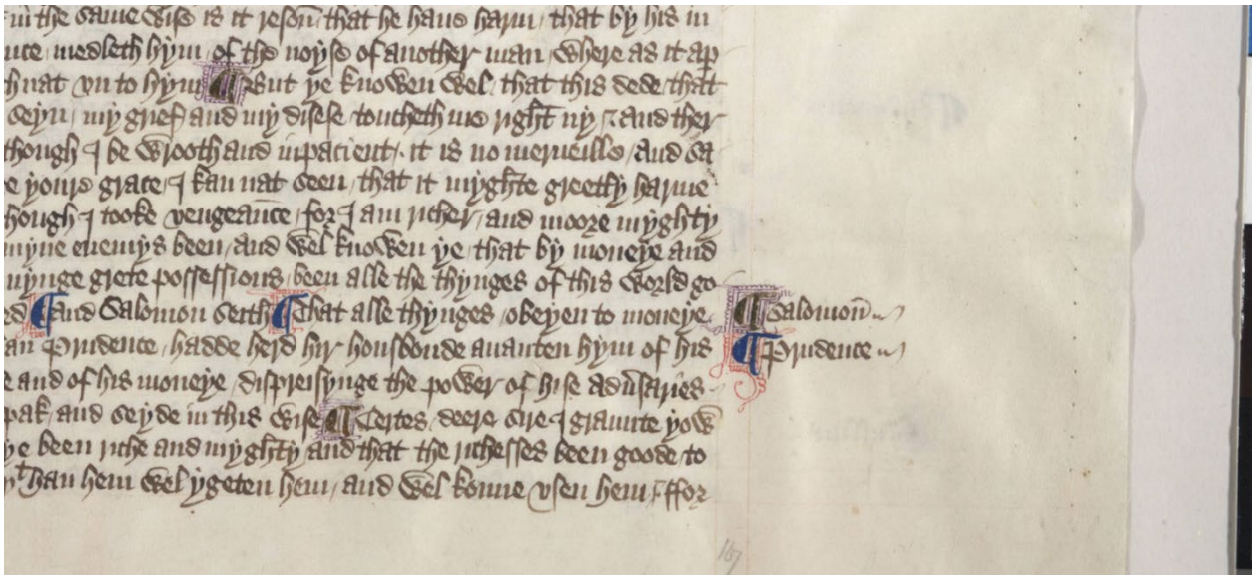 in the same wise is it reson that he haue harm that by his in
nce medleth hym of the noyse of another man where as it ap
th nat vn to hym ¶ But ye knowen wel that this dede that
seyn my grief and my disese toucheth me right ny and ther
though I be wrooth and inpacient it is no merueille And sa
e youre grace I kan nat seen that it myghte greetly harme
hough I tooke vengeance for I am richer and moore myghty
myne enemys been And wel knowen ye that by moneye and
uynge grete possessions been alle the thynges of this world go
ed ¶ and Salomon seith ¶ That alle thynges obeyen to moneye
an Prudence hadde herd hir housbonde auanten hym of his
e and of his moneye dispreisynge the power of hise aduersaries
pak and seyde in this wise ¶ Certes deere sire I graunte yow
ye been riche and myghty and that the richesses been goode to
yt han hem wel ygeten hem and wel konne vsen hem / ffor
¶ Salomon
¶ Prudence
167